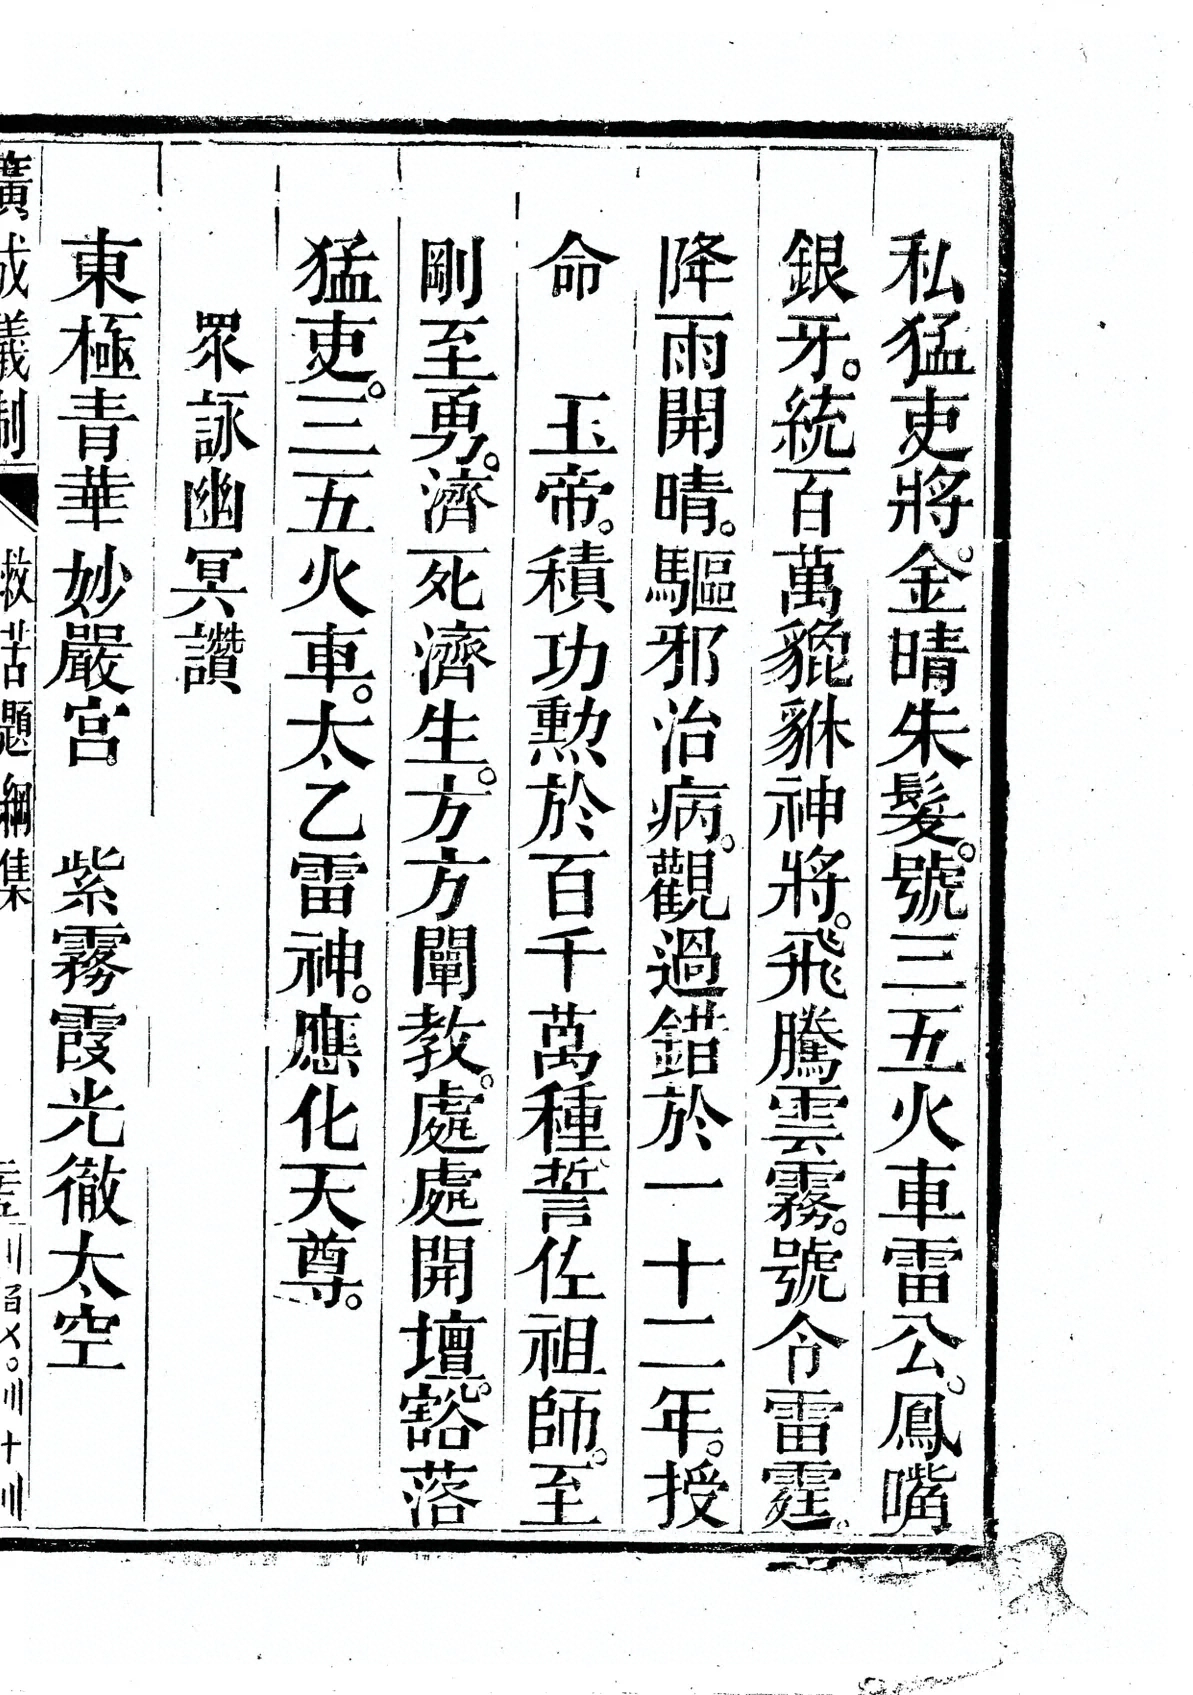 私猛吏將。金晴朱髮。號三五火車雷公。鳳嘴
銀牙。統百萬貔貅神將。飛騰雲霧。號令雷霆。
降雨開晴。驅邪治病。觀過錯於一十二年。授
命　玉帝。積功勲於百千萬種。誓佐祖師。至
剛至勇。濟死濟生。方方闡教。處處開壇。豁落
猛吏。三五火車。太乙雷神。應化天尊。
眾詠幽冥讚
東極青華妙嚴宮　紫霧霞光徹太空
廣成儀制　救苦題綱集